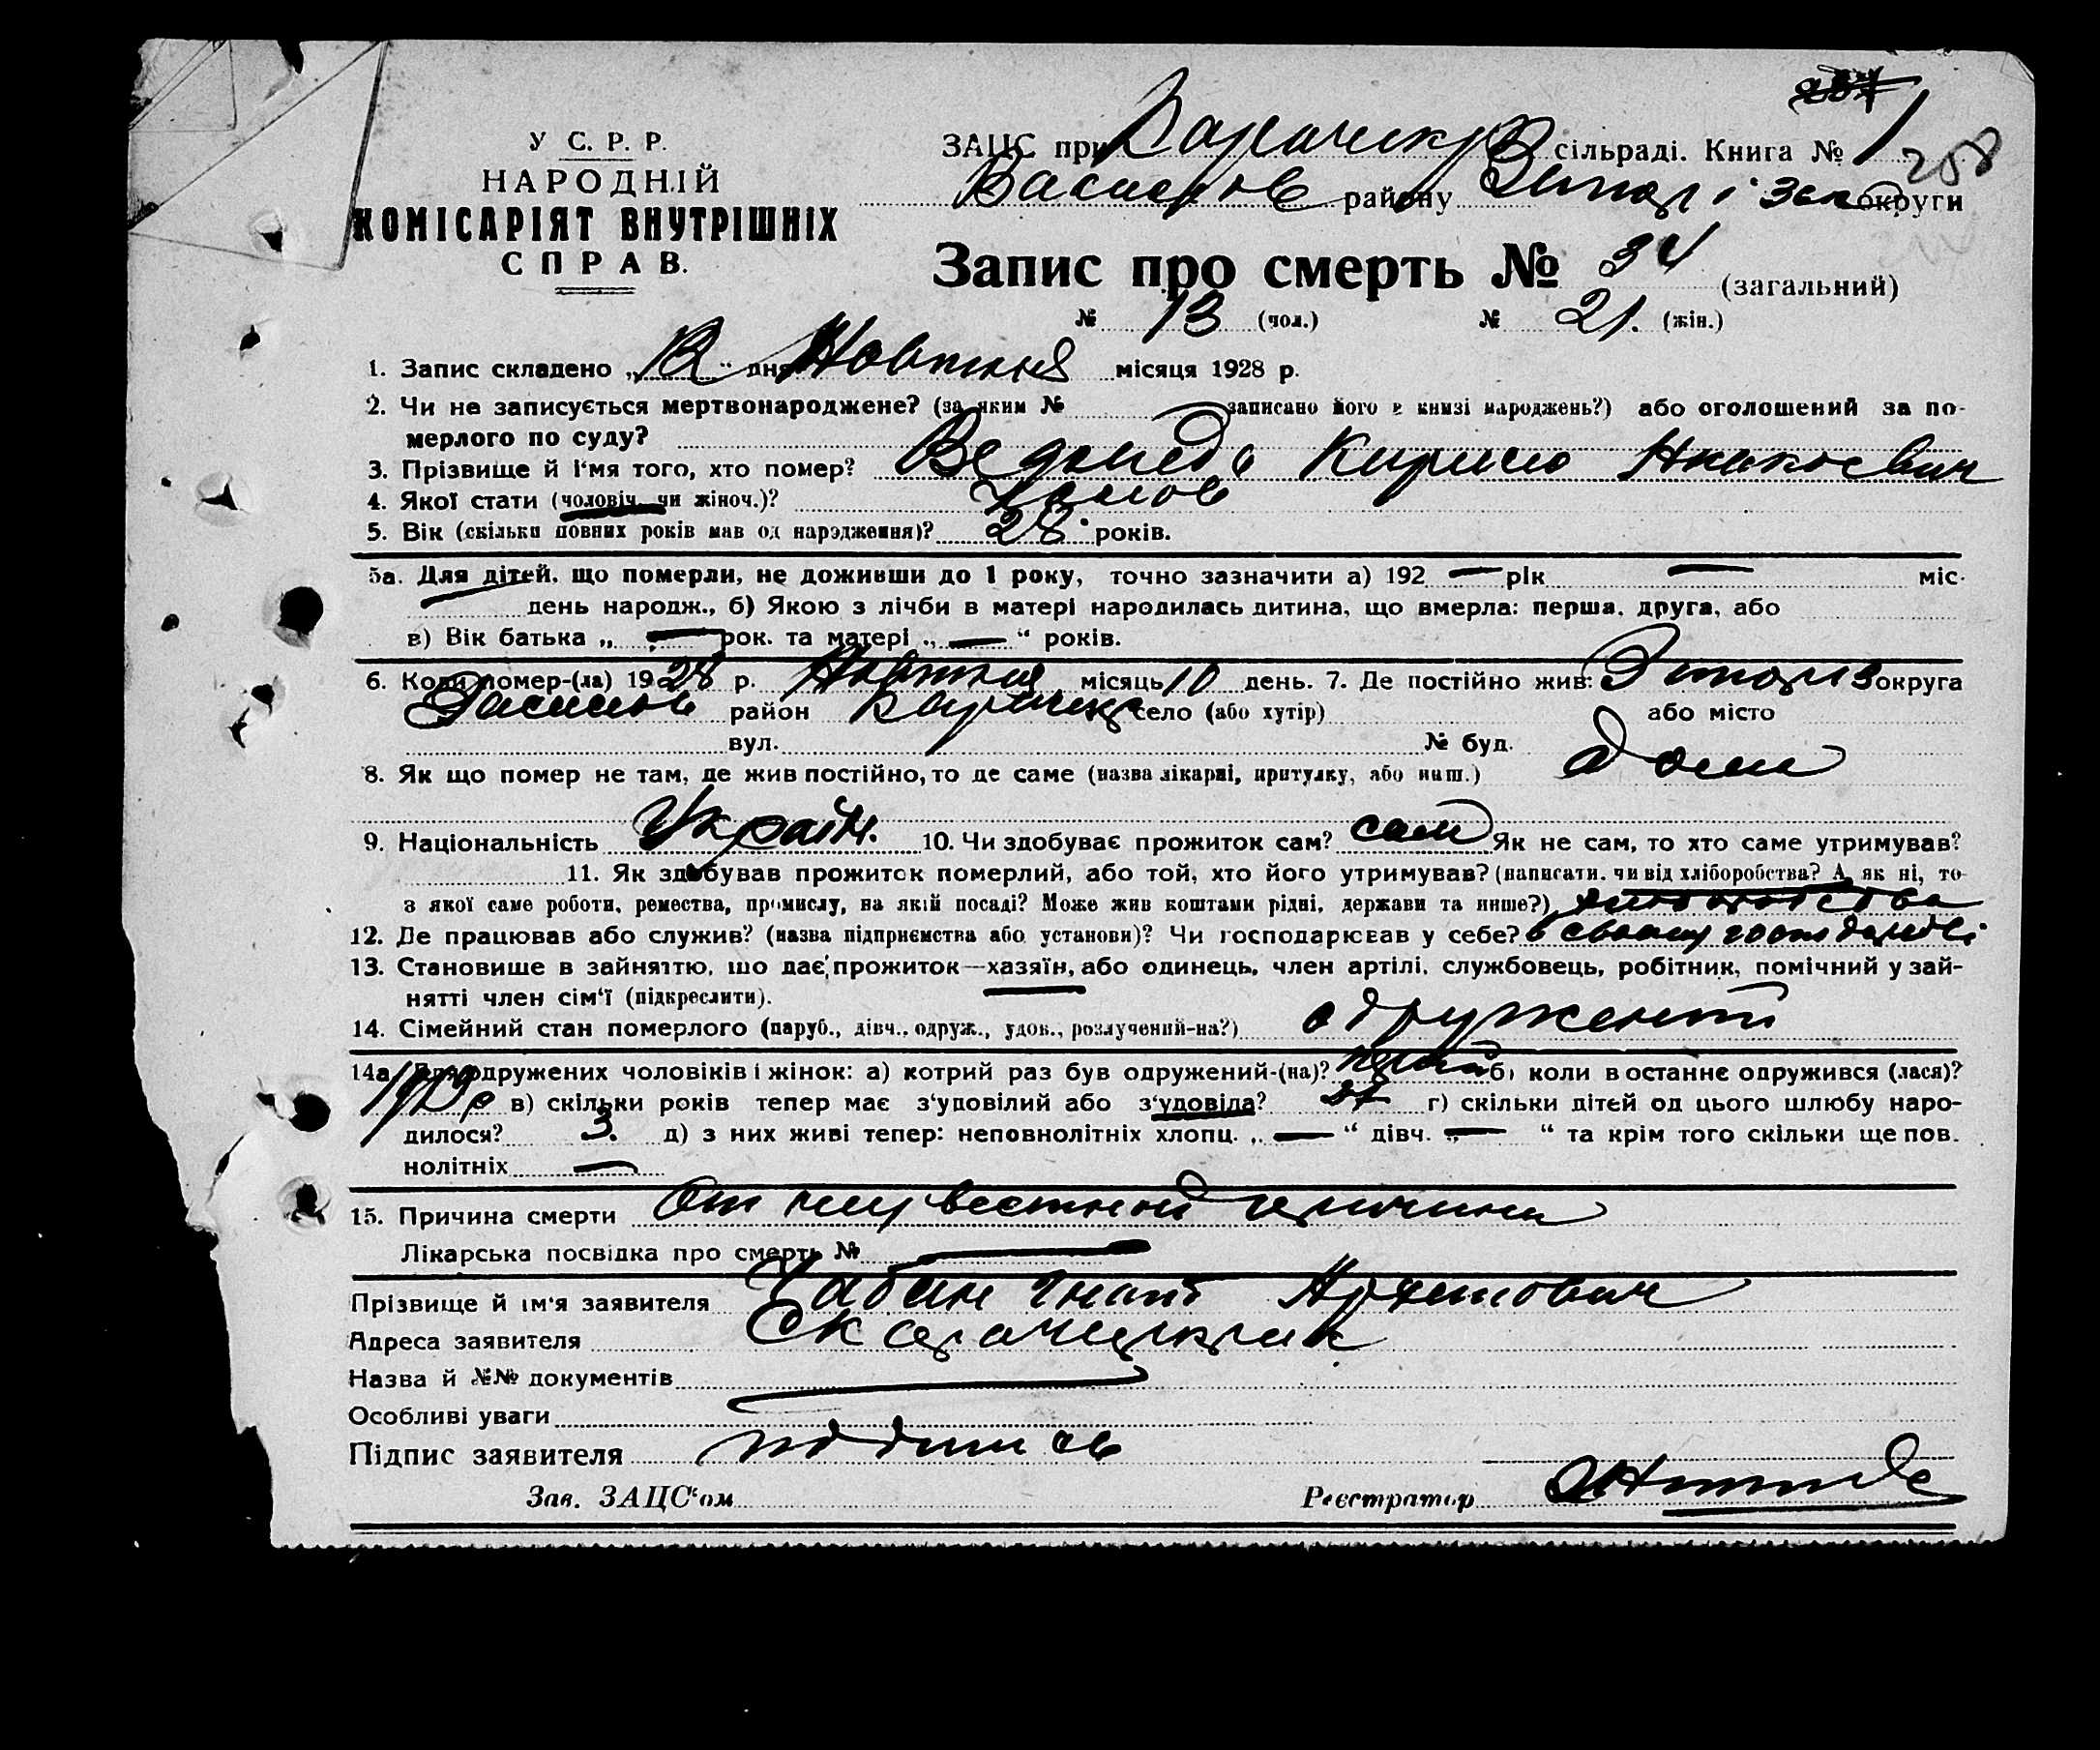 У С. Р. Р.
НАРОДНІЙ
КОМІСАРІЯТ ВНУТРІШНІХ
СПРАВ.
ЗАЦС при сільраді. Книга № 1
258
району округи
Запис про смерть № 34 (загальний)
№ 13 (чол.) № 21. (жін.)
1. Запис складено „12“ дня Жовтня місяця 1928 р.
2. Чи не записується мертвонароджене? (за яким № записано його в книзі народжень?) або оголошений за по-
мерлого по суду?
3. Прізвище й ім'я того, хто помер? Кирило
4. Якої стати (чоловіч. чи жіноч.)? Чолов
5. Вік (скільки повних років мав од народження)? 28 років.
5а. Для дітей, що померли, не доживши до 1 року, точно зазначити а) 192 — рік — міс.
день народж., б) Якою з лічби в матері народилась дитина, що вмерла: перша, друга, або
в) Вік батька „ — рок. та матері „ — “ років.
6. Коли помер-(ла) 1928 р. Жовтня місяць 10 день. 7. Де постійно жив: округа
район село (або хутір) або місто
вул. № буд.
8. Як що помер не там, де жив постійно, то де саме (назва лікарні, притулку, або инш.) дома
9. Національність Україн. 10. Чи здобуває прожиток сам? сам Як не сам, то хто саме утримував?
11. Як здобував прожиток померлий, або той, хто його утримував? (написати, чи від хліборобства? А як ні, то
з якої саме роботи, ремества, промислу, на якій посаді? Може жив коштами рідні, держави та инше?)
12. Де працював або служив? (назва підприємства або установи)? Чи господарював у себе? в своему господарстві
13. Становище в зайняттю, що дає прожиток—хазяїн, або одинець, член артілі, службовець, робітник, помічний у зай-
нятті член сім'ї (підкреслити).
14. Сімейний стан померлого (паруб., дівч., одруж., удов., розлучений-на?) одружений
14а Для одружених чоловіків і жінок: а) котрий раз був одружений-(на)? б) коли в останнє одружився (лася)?
в) скільки років тепер має з'удовілий або з'удовіла? г) скільки дітей од цього шлюбу наро-
дилося? 3. д) з них живі тепер: неповнолітніх хлопц. „ — “ дівч. „ — “ та крім того скільки ще пов.
нолітніх —
15. Причина смерти От неизвестной причини
Лікарська посвідка про смерть № —
Прізвище й ім'я заявителя Гнат
Адреса заявителя
Назва й №№ документів —
Особливі уваги
Підпис заявителя
Зав. ЗАЦС'ом Реєстратор